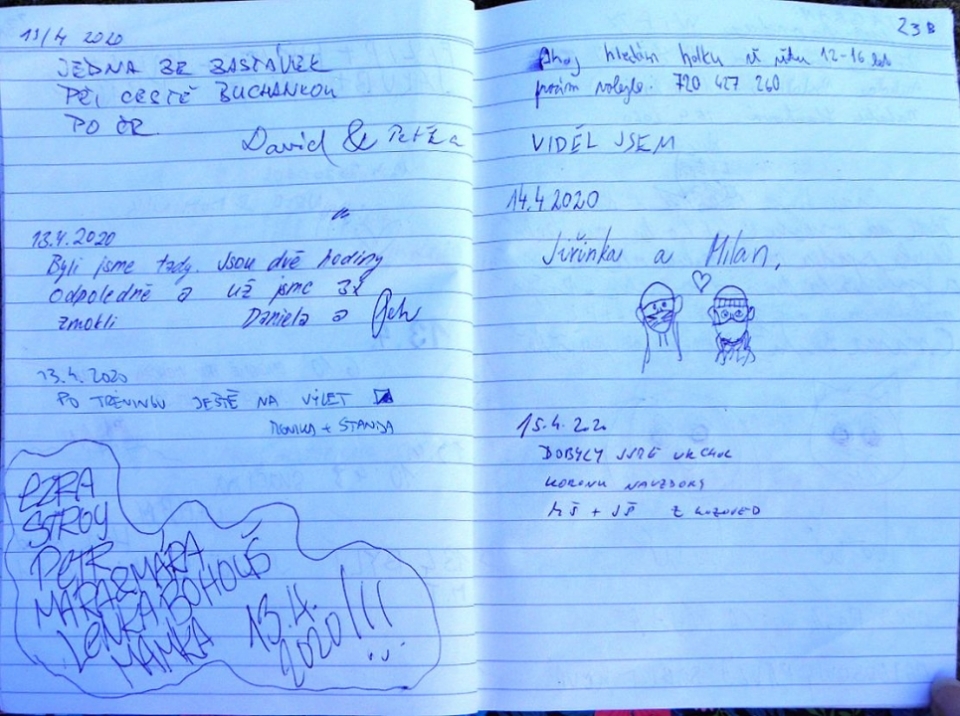 13/4 2020
JEDNA ZE ZASTÁVEK
PŘI CESTĚ BUCHANKOU
PO ČR.
David & Petra
13.4.2020
Byli jsme tady. Jsou dvě hodiny
odpoledně a už jsme 3x
zmokli Daniela a
13.4.2020
PO TRÉNINGU JEŠTĚ NA VÝLET
MONIKA + STANDA
EZRA
STROY
PETR
MÁRA & MÁRA
LENKA BOHOUŠ
MAMKA 13.4.
2020!!!
23B
Ahoj hledám holku ve věku 12-16 let
prosím volejte. 720 427 260
VIDĚL JSEM
14.4.2020
Jiřinka a Milan,
15.4.2020
DOBYLY JSME VRCHOL
KORONĚ NAVZDORY
MŠ + JŠ Z